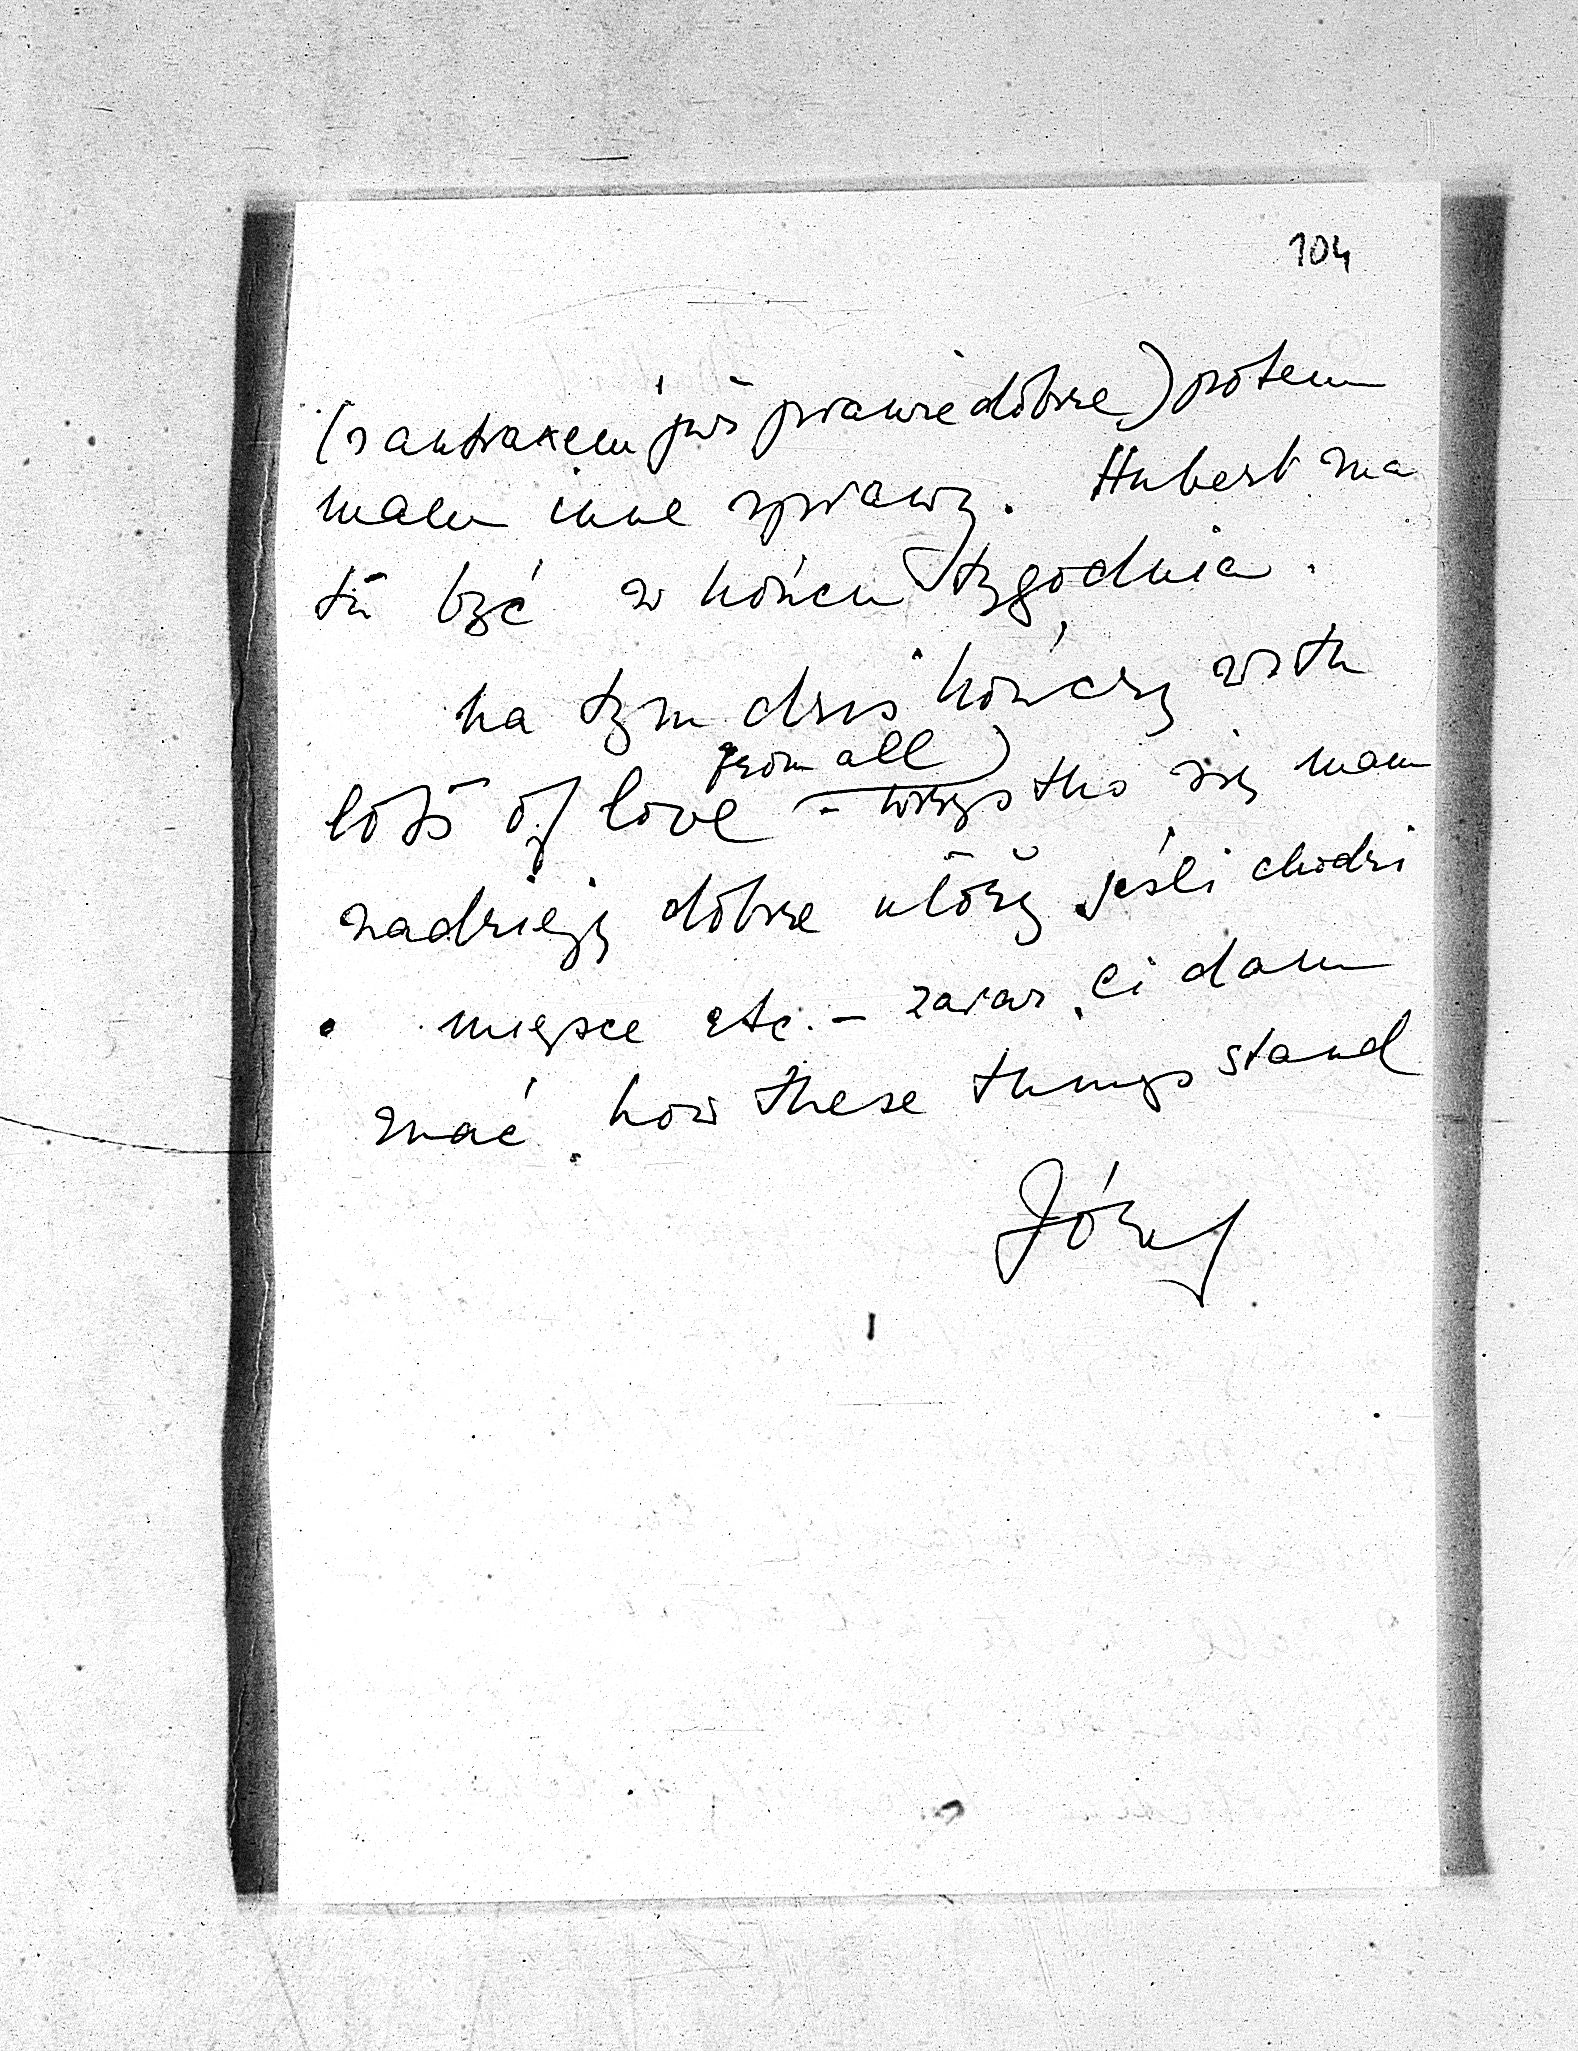 104
(z antraxem już prawie dobrze) potem
mam inne sprawy. Hubert ma
tu być w końcu tygodnia.
na tym dziś kończę with
from all)
lots of love - wszystko się mam
nadzieję dobrze ułoży jeśli chodzi
miejsce etc. - zaraz Ci dam
znać how these things stand
Józef